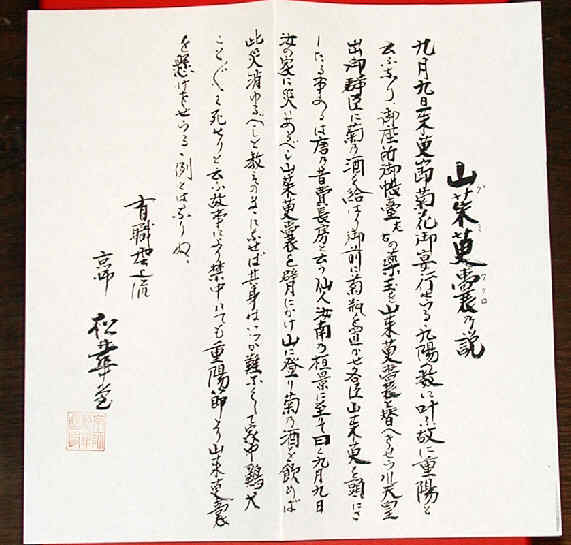 山茱萸嚢乃説
グミブクロ
九月九日茱萸節菊花御宴行はる九陽の数に叶ふ故に重陽と
云ふなり御座所御帳臺 の薬玉を山茱萸嚢と替へさせらる天皇
出御群臣に菊の酒を給はり御前に菊瓶を置かせ各臣山茱萸を頭にさ
したる事あるは唐の昔費長房と云う仙人汝南の桓景に至て曰く九月九日
汝の家に災いあるべし山茱萸嚢を臂にかけ山に登り菊の酒を飲めば
此災消ゆるべしと教え に ば其身はいつか難 家中鶏犬
ことごとく死せりと云ふ故事により禁中にても重陽節より山茱萸嚢
を懸けさせらる 例とはなりぬ
有職 流
京師 松 堂